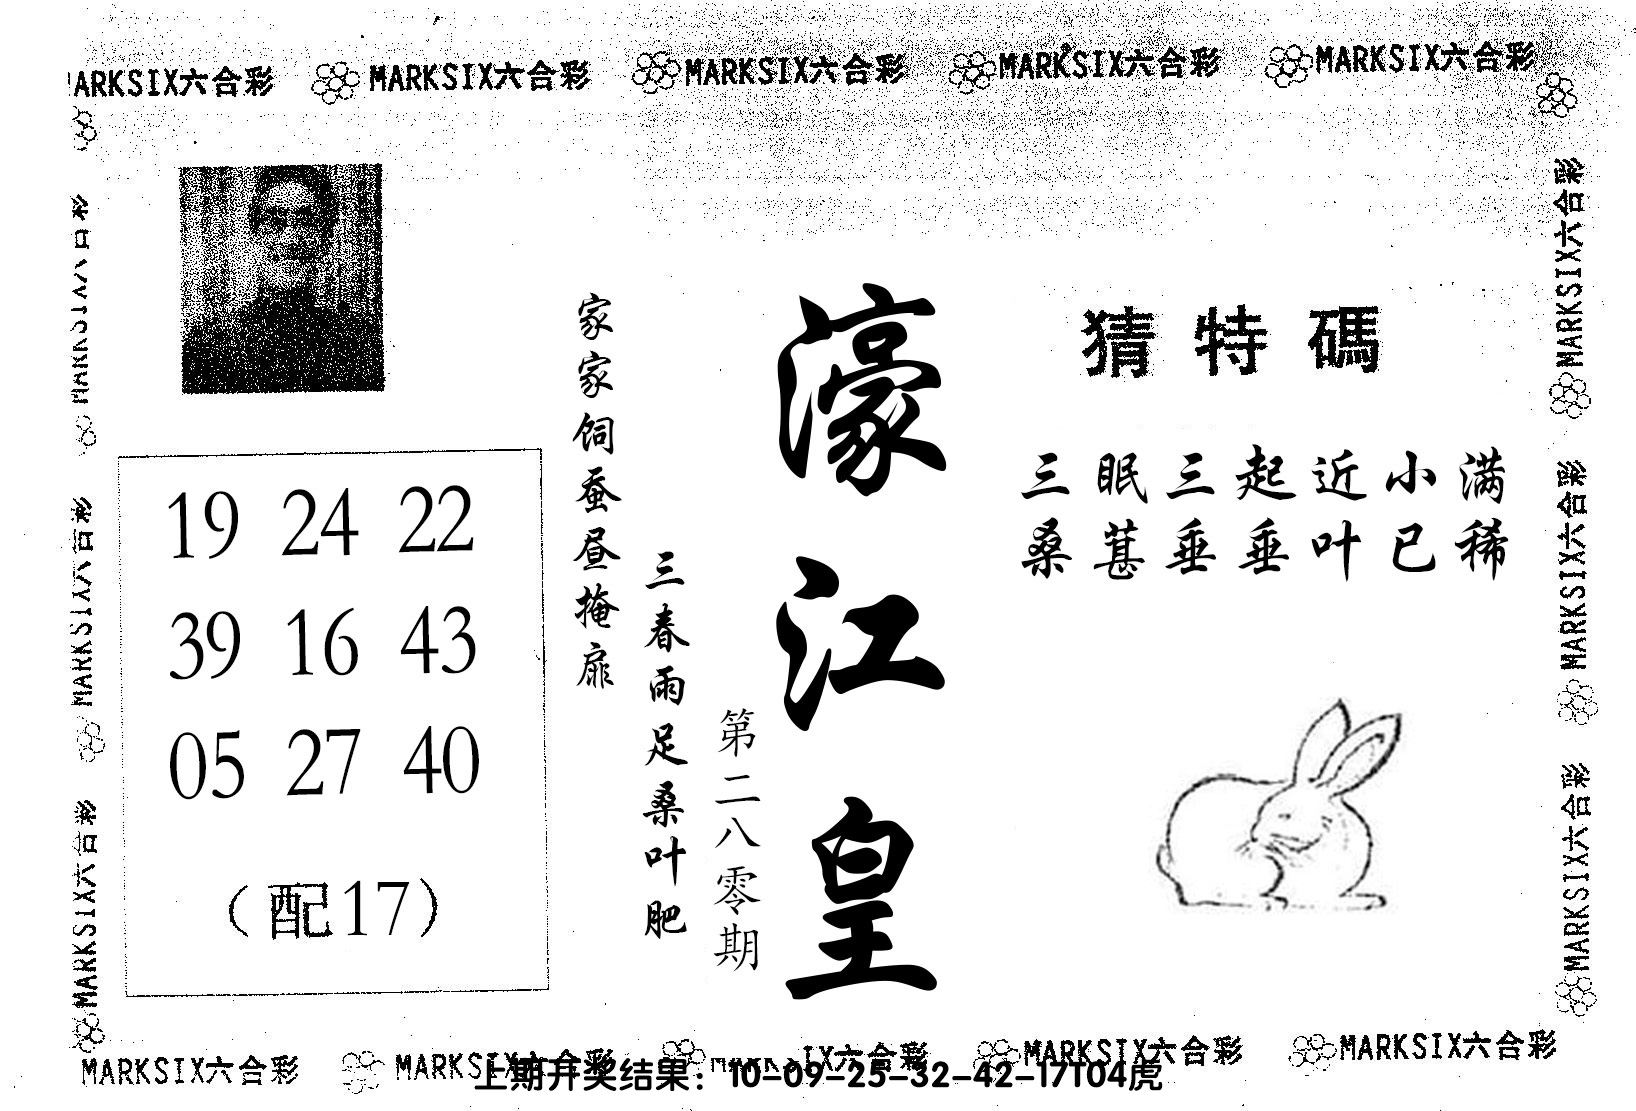 MARKSIX六合彩 MARKSIX六合彩 MARKSIX六合彩 MARKSIX六合彩
濠江皇
第二八零期
三春雨足桑叶肥
家家饲蚕昼掩扉
猜特碼
三眠三起近小满
桑葚垂垂叶已稀
19 24 22
39 16 43
05 27 40
（配17）
MARKSIX六合彩
MARKSIX六合彩
MARKSIX六合彩
MARKSIX六合彩
MARKSIX六合彩
MARKSIX六合彩 MARKSIX六合彩 MARKSIX六合彩 MARKSIX六合彩
上期开奖结果：10-09-25-32-42-17T04虎